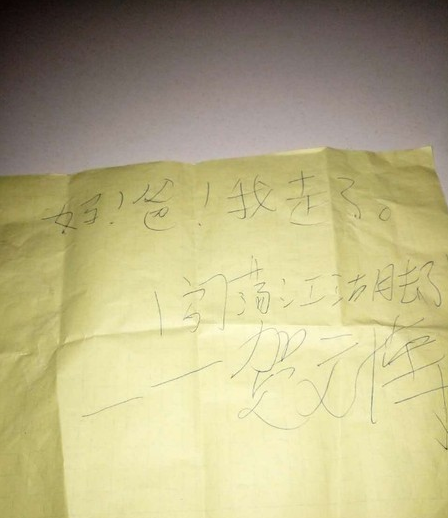 好!爸!我走了。
闯荡江湖去了
——贺文